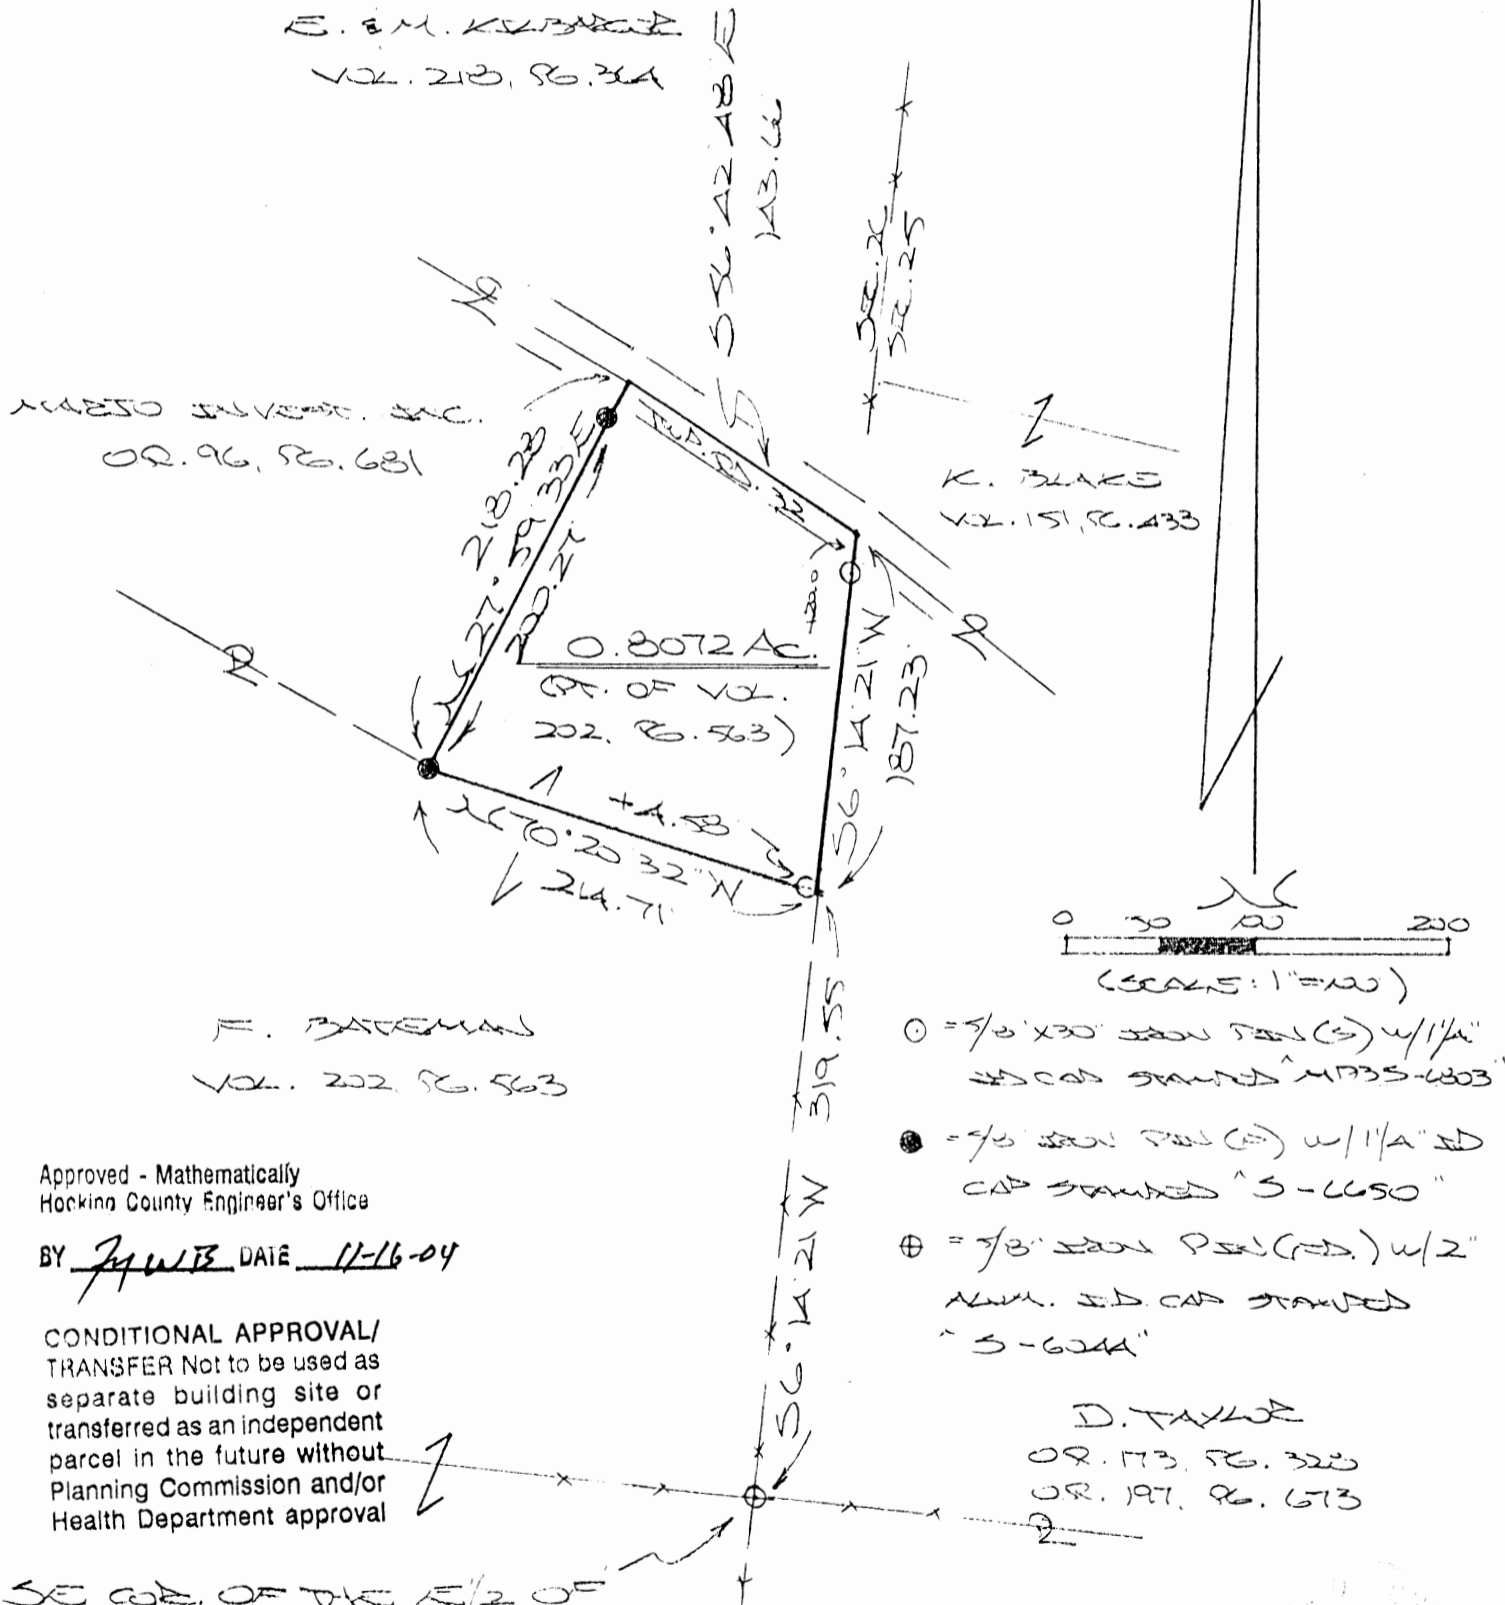 E. & M. KILBARGER
VOL. 218, PG. 364
S 56° 42' 48" E
143.66
SEC. 26
SEC. 25
MARJO INVEST. INC.
OR. 96, PG. 681
TWP. RD. 32
K. BLAKE
VOL. 151, PG. 433
218.28
N 27° 59' 33" E
200.27
+20.0
0.8072 AC.
(PT. OF VOL.
202, PG. 563)
S 6° 14' 21" W
187.23
+4.58
N 70° 20' 32" W
214.71
N
0 50 100 200
(SCALE: 1"=100')
F. BATEMAN
VOL. 202 PG. 563
319.55
S 6° 14' 21" W
= 5/8" X 30" IRON PIN (S) W/ 1 1/4"
ID CAP STAMPED "MPPS-6803"
= 5/8" IRON PIN (F) W/ 1 1/4" ID
CAP STAMPED "S-6650"
= 5/8" IRON PIN (FD.) W/ 2"
ALUM. I.D. CAP STAMPED
"S-6044"
Approved - Mathematically
Hocking County Engineer's Office
BY DATE 11-16-04
CONDITIONAL APPROVAL/
TRANSFER Not to be used as
separate building site or
transferred as an independent
parcel in the future without
Planning Commission and/or
Health Department approval
D. TAYLOR
OR. 173, PG. 328
OR. 197, PG. 673
SE COR. OF THE E 1/2 OF